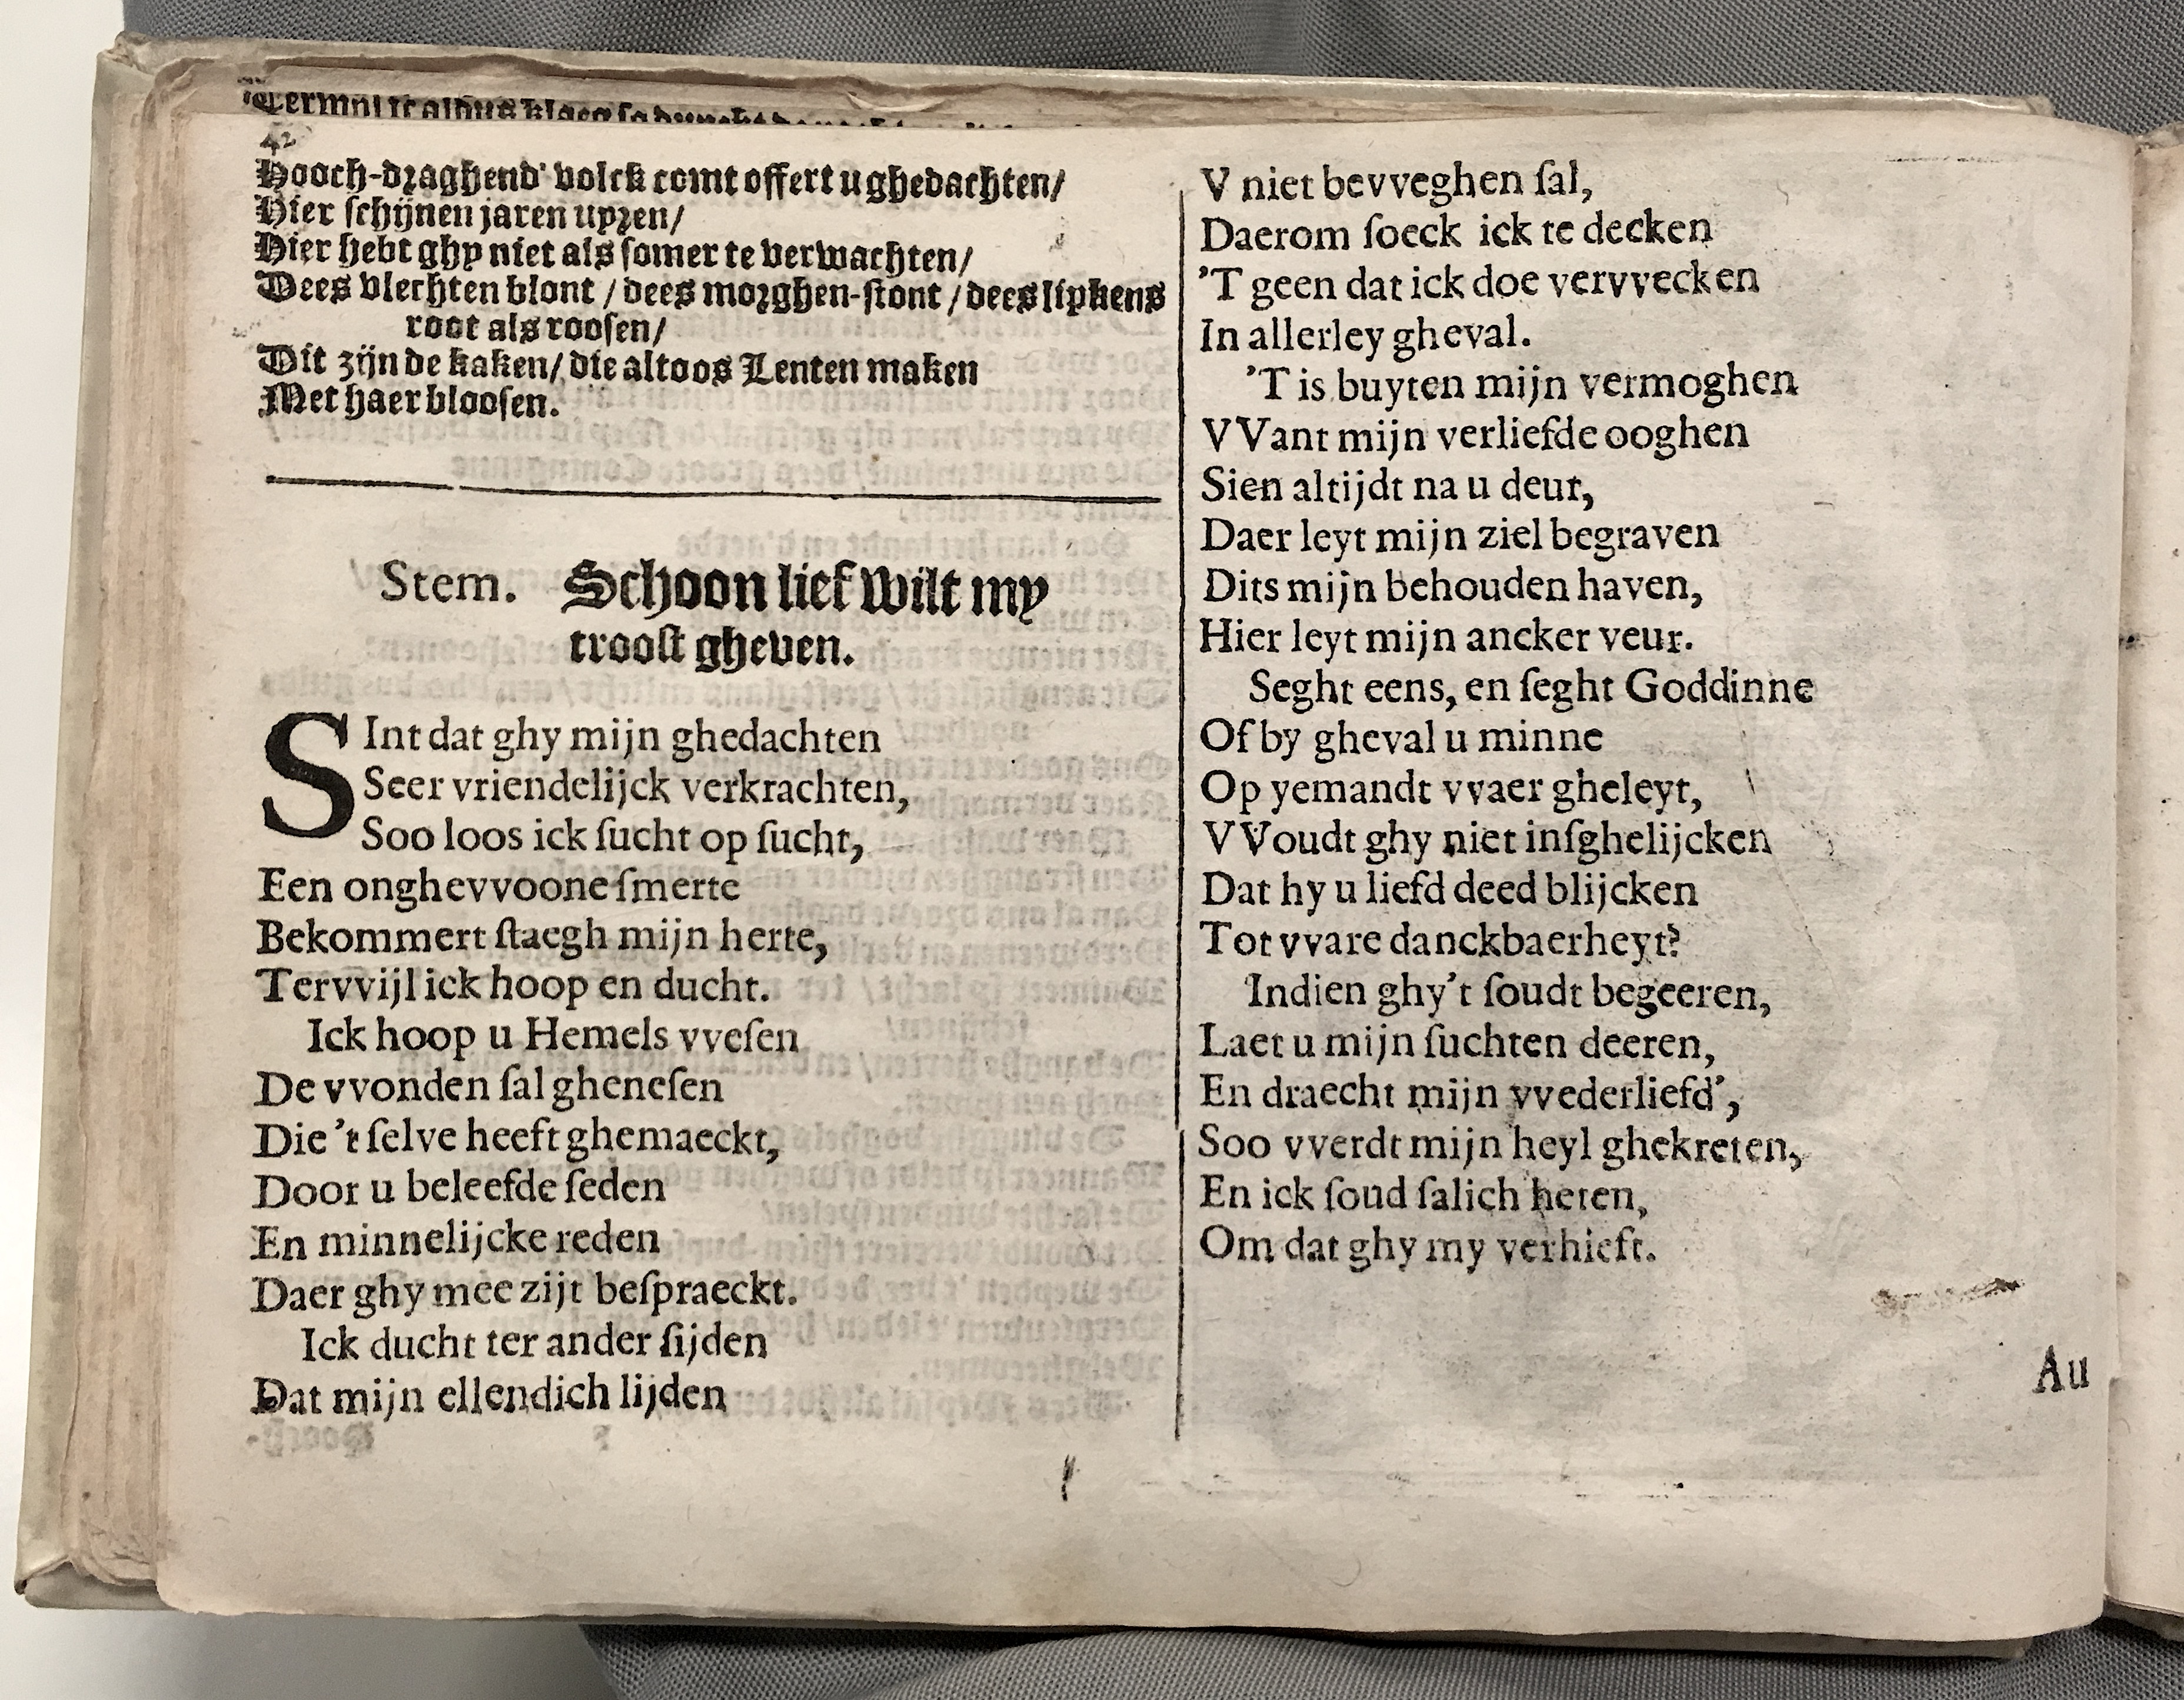 42
Hooch-draghend' volck comt offert u ghedachten/
Hier schijnen jaren upzen/
Hier hebt ghy niet als somer te verwachten/
Dees vlechten blont / dees morghen-stont / dees lipkens
root als roosen/
Dit zijn de kaken/ die altoos Lenten maken
Met haer bloosen.
Stem. Schoon lief wilt my
troost gheven.
SInt dat ghy mijn ghedachten
Seer vriendelijck verkrachten,
Soo loos ick ſucht op ſucht,
Een onghevvoone ſmerte
Bekommert ſtaegh mijn herte,
Tervvijl ick hoop en ducht.
Ick hoop u Hemels vveſen
De vvonden ſal gheneſen
Die 't ſelve heeft ghemaeckt,
Door u beleefde ſeden
En minnelijcke reden
Daer ghy mee zijt beſpraeckt.
Ick ducht ter ander ſijden
Dat mijn ellendich lijden
V niet bevveghen ſal,
Daerom ſoeck ick te decken
'T geen dat ick doe vervvecken
In allerley gheval.
'T is buyten mijn vermoghen
VVant mijn verliefde ooghen
Sien altijdt na u deur,
Daer leyt mijn ziel begraven
Dits mijn behouden haven,
Hier leyt mijn ancker veur.
Seght eens, en ſeght Goddinne
Of by gheval u minne
Op yemandt vvaer gheleyt,
VVoudt ghy niet inſghelijcken
Dat hy u liefd deed blijcken
Tot vvare danckbaerheyt?
Indien ghy't ſoudt begeeren,
Laet u mijn ſuchten deeren,
En draecht mijn vvederliefd',
Soo vverdt mijn heyl ghekreten,
En ick ſoud ſalich heten,
Om dat ghy my verhieft.
Au